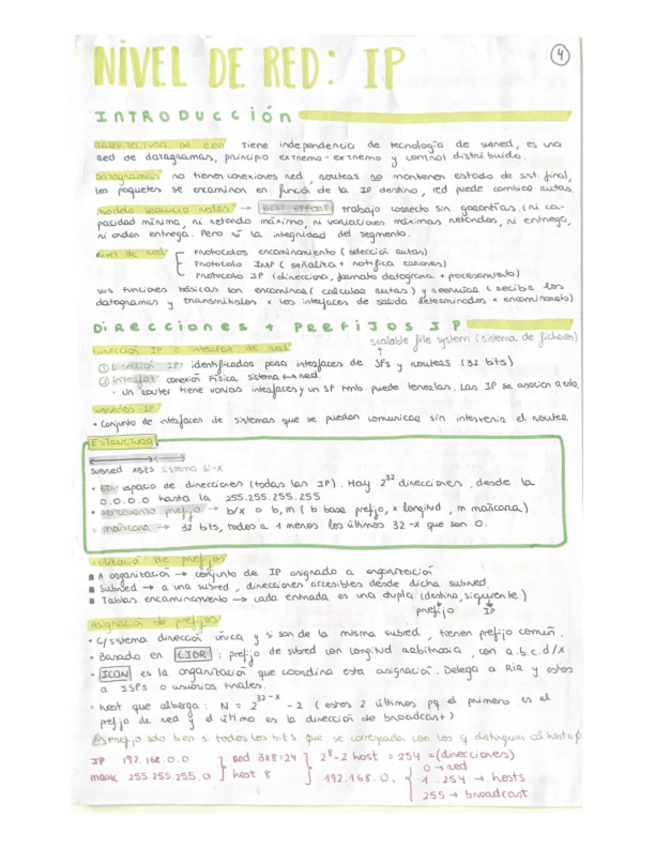 NIVEL DE RED: IP
4
INTRODUCCIÓN
ARQUITECTURA DE RED Tiene independencia de tecnología de subred, es una
red de datagramas, principio extremo-extremo y control distribuido.
Datagramas no tienen conexiones red, routeas no mantienen estado de sist. final,
los paquetes se encaminan en función de la IP destino, red puede cambiar rutas.
modelo servicio redes → BEST EFFORT trabajo correcto sin garantías. (ni ca-
pacidad mínima, ni retardo máximo, ni variaciones máximas retardos, ni entrega,
ni orden entrega. Pero sí la integridad del segmento.
Nivel de red
Protocolos encaminamiento (selección rutas)
Protocolo IMP (señaliza + notifica errores)
Protocolo IP (dirección, formato datagrama + procesamiento)
sus funciones básicas son encaminar (calcular rutas) y reenviar (recibir los
datagramas y transmitirlos a los interfaces de salida determinados x encaminamto)
Direcciones + PREFIJOS IP
scalable file system (sistema de ficheros)
Dirección IP e interfaz de red
① Dirección IP: identificador para interfaces de SFs y routers (32 bits)
② interfaz: conexión física sistema-subred.
· un router tiene varias interfaces y un SF tmb puede tenerlas. Las IP se asocian a c/u.
Subredes IP
• Conjunto de interfaces de sistemas que se pueden comunicar sin intervenir el router
ESTRUCTURA
subred xbits sistema 32-x
• EDI espacio de direcciones (todas las IP). Hay 2^32 direcciones, desde la
0.0.0.0 hasta la 255.255.255.255
• prefijo → b/x o b,m (b base prefijo, x longitud, m máscara)
• máscara → 32 bits, todos a 1 menos los últimos 32-x que son 0.
de prefijos
■ A organización → conjunto de IP asignado a organización
■ Subred → a una subred, direcciones accesibles desde dicha subred.
■ Tablas encaminamiento → cada entrada es una dupla (destino, siguiente)
prefijo IP
Asignación de prefijos
• C/sistema dirección única y si son de la misma subred, tienen prefijo común.
• Basado en CIDR: prefijo de subred con longitud arbitraria, con a.b.c.d/x
• ICAN es la organización que coordina esta asignación. Delega a RIR y estos
a ISPs o usuarios finales.
• host que alberga: N = 2^32-x - 2 (estos 2 últimos pq el primero es el
prefijo de red y el último es la dirección de broadcast)
prefijo sólo bien si todos los bits que se correspondan con los q distinguen al host a 0
IP 192.168.0.0
mask 255.255.255.0
red 3x8=24
host 8
2^8-2 host = 254 = (direcciones)
192.168.0.
0 → red
1...254 → hosts
255 → broadcast